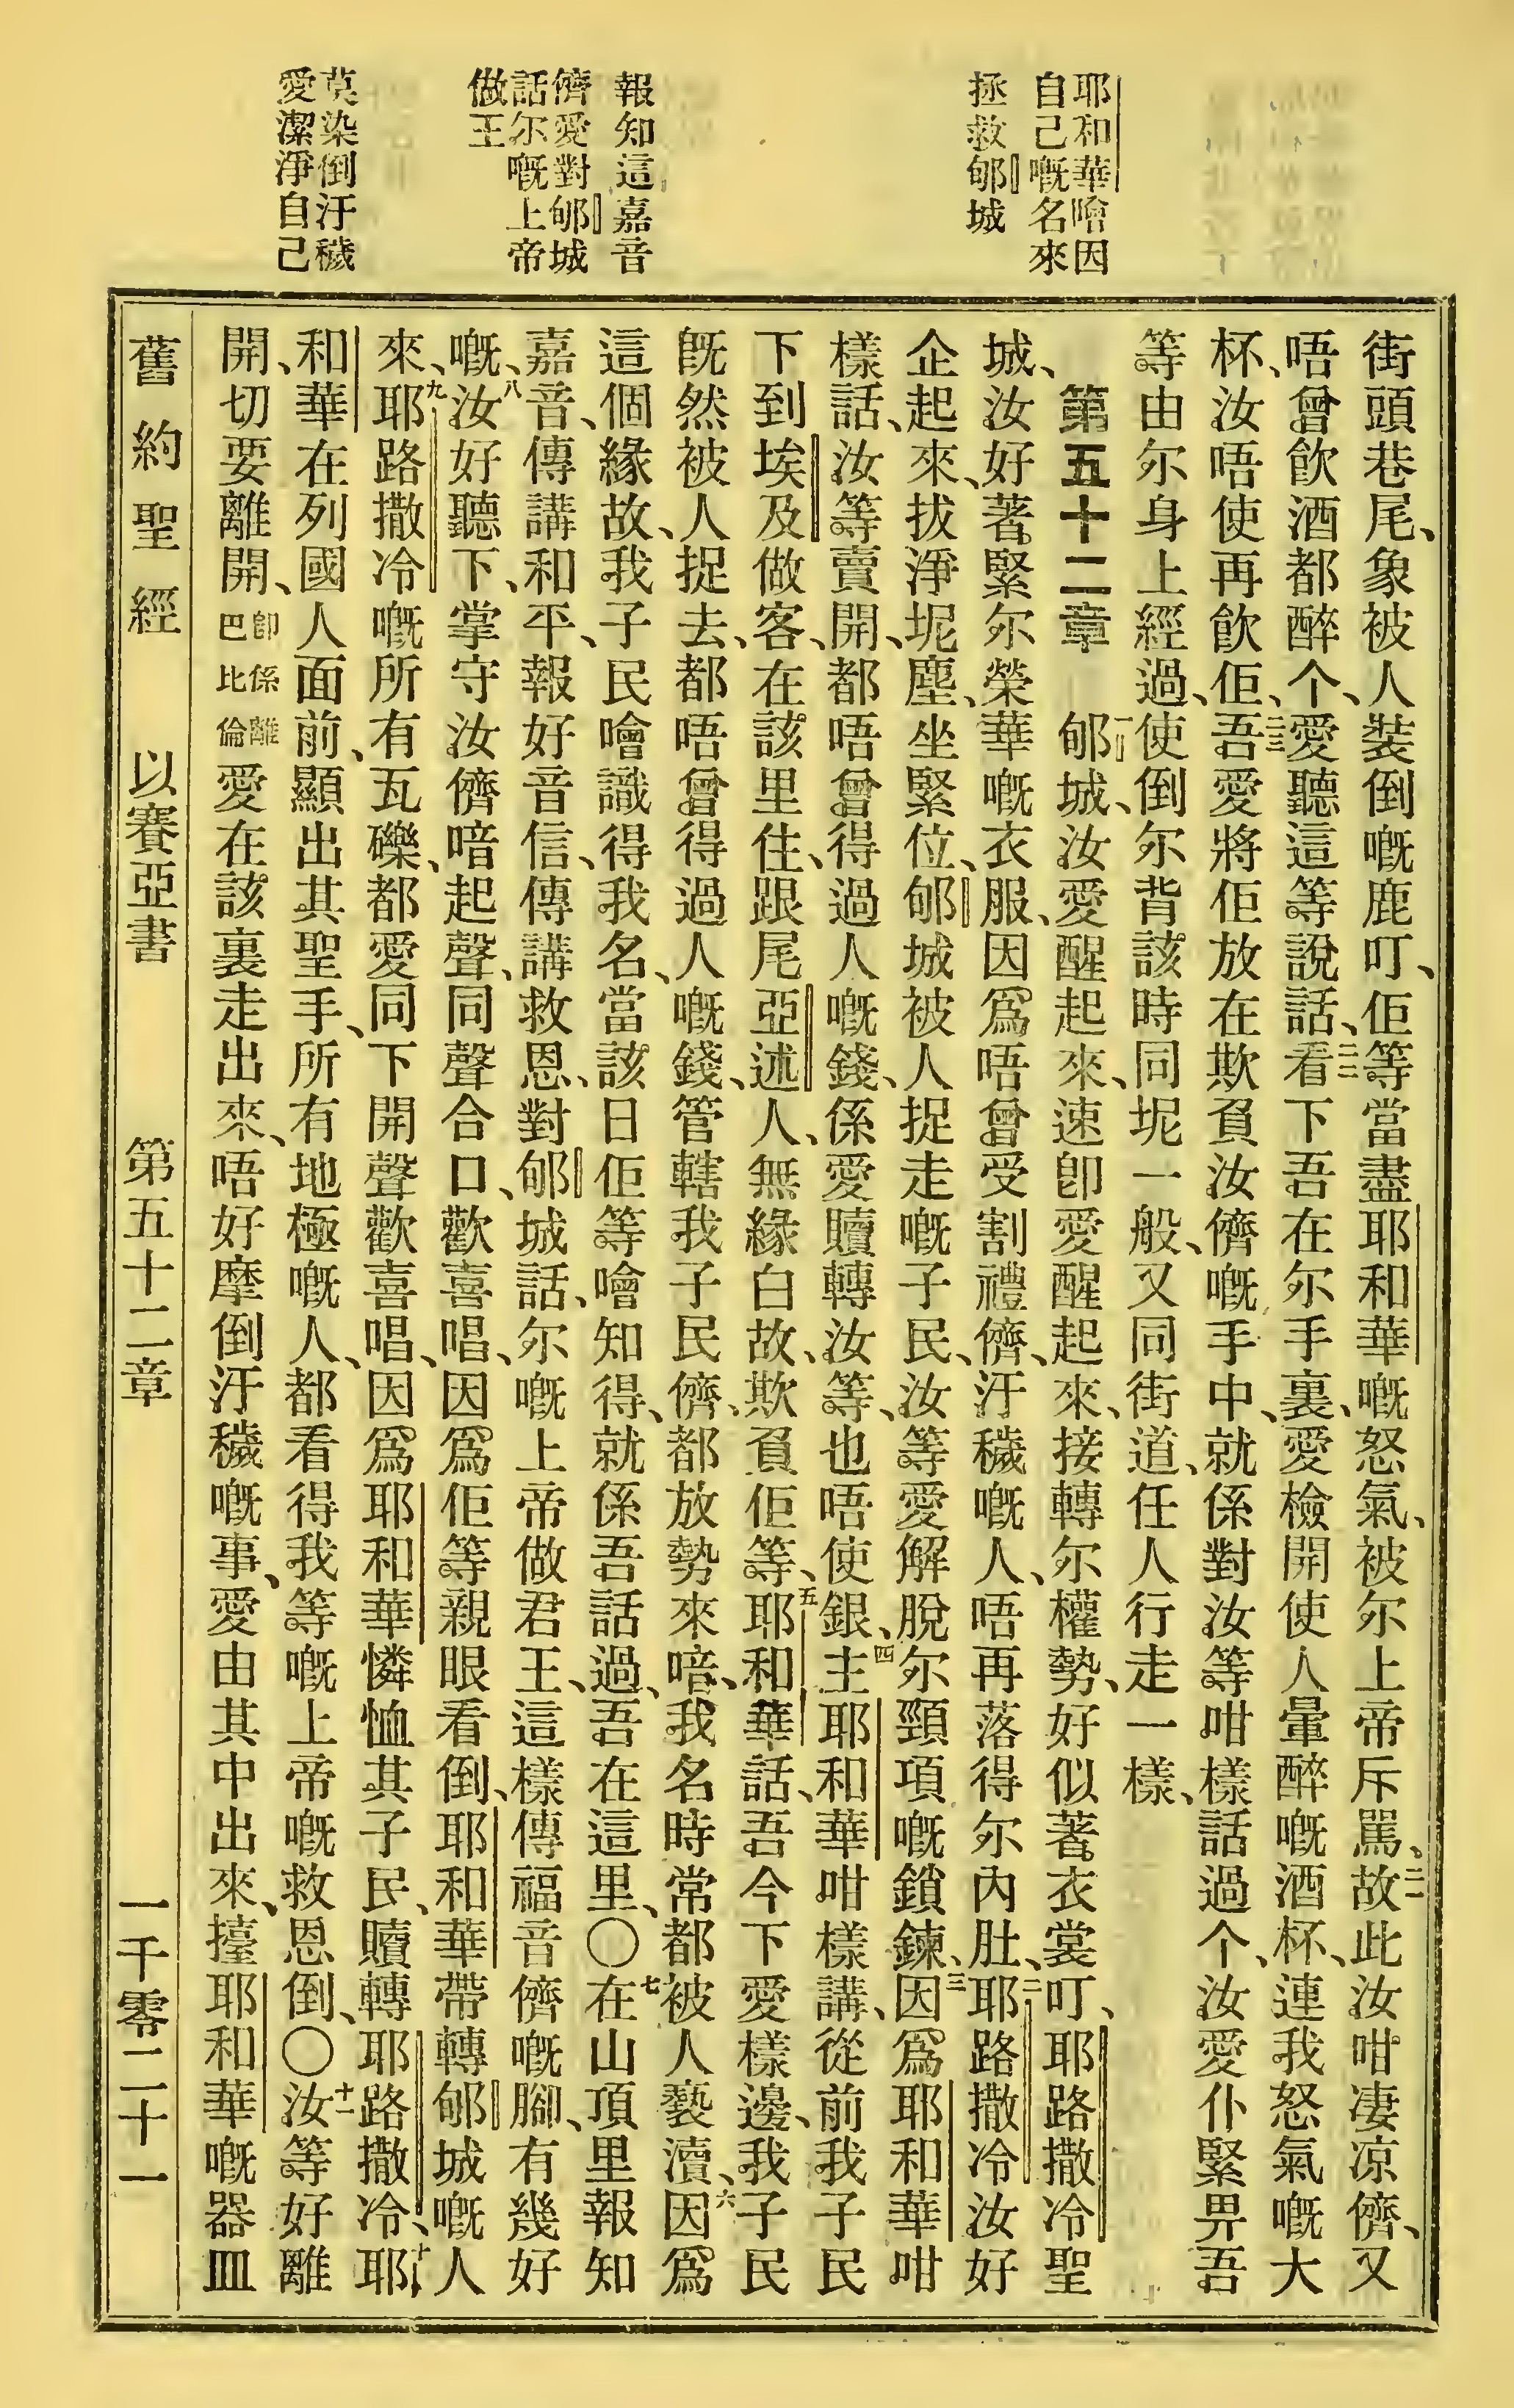 耶和華噲因
自己嘅名來
拯救郇城
報知這嘉音
儕愛對郇城
話尔嘅上帝
做王
莫染倒汙穢
愛潔淨自己
街頭巷尾、象被人裝倒嘅鹿叮、佢等當盡耶和華嘅怒氣、被尔上帝斥罵、二一故此汝咁凄凉儕、又
唔曾飮酒都醉个、愛聽這等說話、二二看下吾在尔手裏、愛檢開使人暈醉嘅酒杯、連我怒氣嘅大
杯、汝唔使再飮佢、二三吾愛將佢放在欺負汝儕嘅手中、就係對汝等咁樣話過个、汝愛仆緊畀吾
等由尔身上經過、使倒尔背該時同坭一般、又同街道、任人行走一樣、
第五十二章 一郇城、汝愛醒起來、速卽愛醒起來、接轉尔權勢、好似著衣裳叮、耶路撒冷聖
城、汝好著緊尔榮華嘅衣服、因爲唔曾受割禮儕、汙穢嘅人、唔再落得尔內肚、二耶路撒冷汝好
企起來、拔淨坭塵、坐緊位、郇城被人捉走嘅子民、汝等愛解脫尔頸項嘅鎖鍊、三因爲耶和華咁
樣話、汝等賣開、都唔曾得過人嘅錢、係愛贖轉汝等、也唔使銀、四主耶和華咁樣講、從前我子民
下到埃及做客、在該里住、跟尾亞述人、無緣白故、欺負佢等、五耶和華話、吾今下愛樣邊、我子民
旣然被人捉去、都唔曾得過人嘅錢、管轄我子民儕、都放勢來喑、我名時常都被人褻瀆、六因爲
這個緣故、我子民噲識得我名、當該日佢等噲知得、就係吾話過、吾在這里、〇七在山頂里報知
嘉音、傳講和平、報好音信、傳講救恩、對郇城話、尔嘅上帝做君王、這樣傳福音儕嘅腳、有幾好
嘅、八汝好聽下、掌守汝儕喑起聲、同聲合口、歡喜唱、因爲佢等親眼看倒、耶和華帶轉郇城嘅人
來、九耶路撒冷嘅所有瓦礫、都愛同下開聲歡喜唱、因爲耶和華憐恤其子民、贖轉耶路撒冷、十耶
和華在列國人面前、顯出其聖手、所有地極嘅人、都看得我等嘅上帝嘅救恩倒、〇十一汝等好離
開、切要離開、卽係離巴比倫愛在該裏走出來、唔好摩倒汙穢嘅事、愛由其中出來、擡耶和華嘅器皿
舊約聖經 以賽亞書 第五十二章 一千零二十一